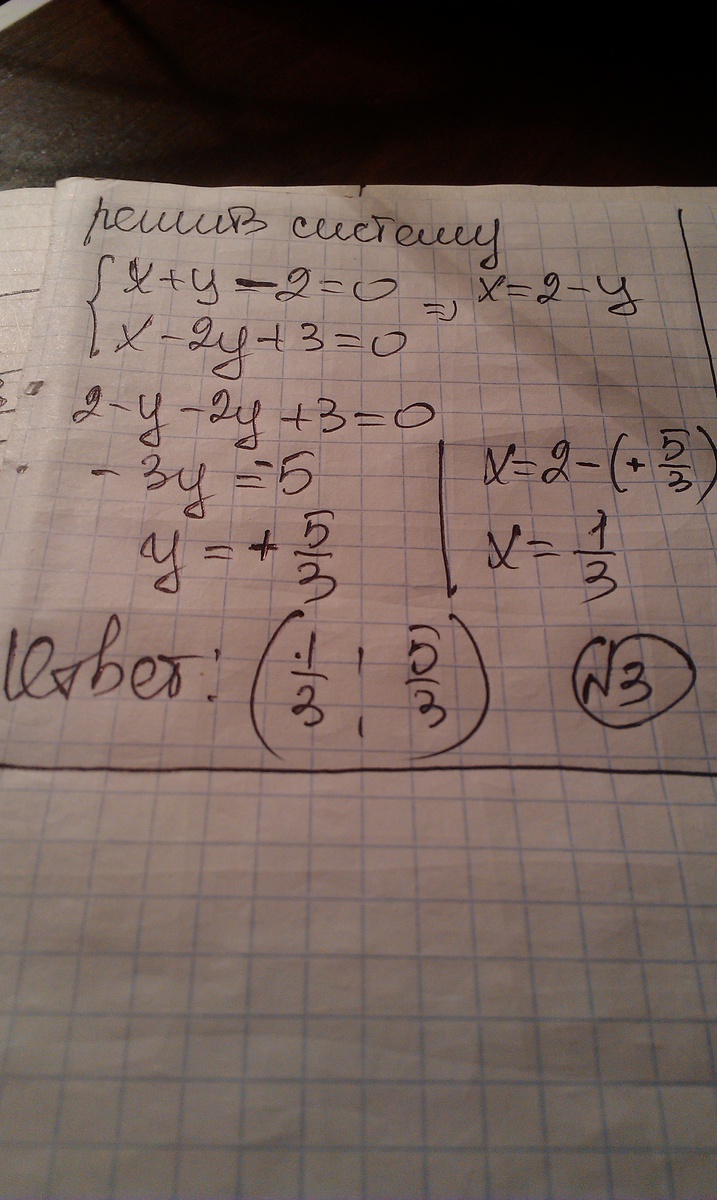 решить систему
{ x+y-2=0 => x=2-y
x-2y+3=0
2-y-2y+3=0
-3y=-5
y=+5/3
x=2-(+5/3)
x=1/3
Ответ: (1/3; 5/3)
№3